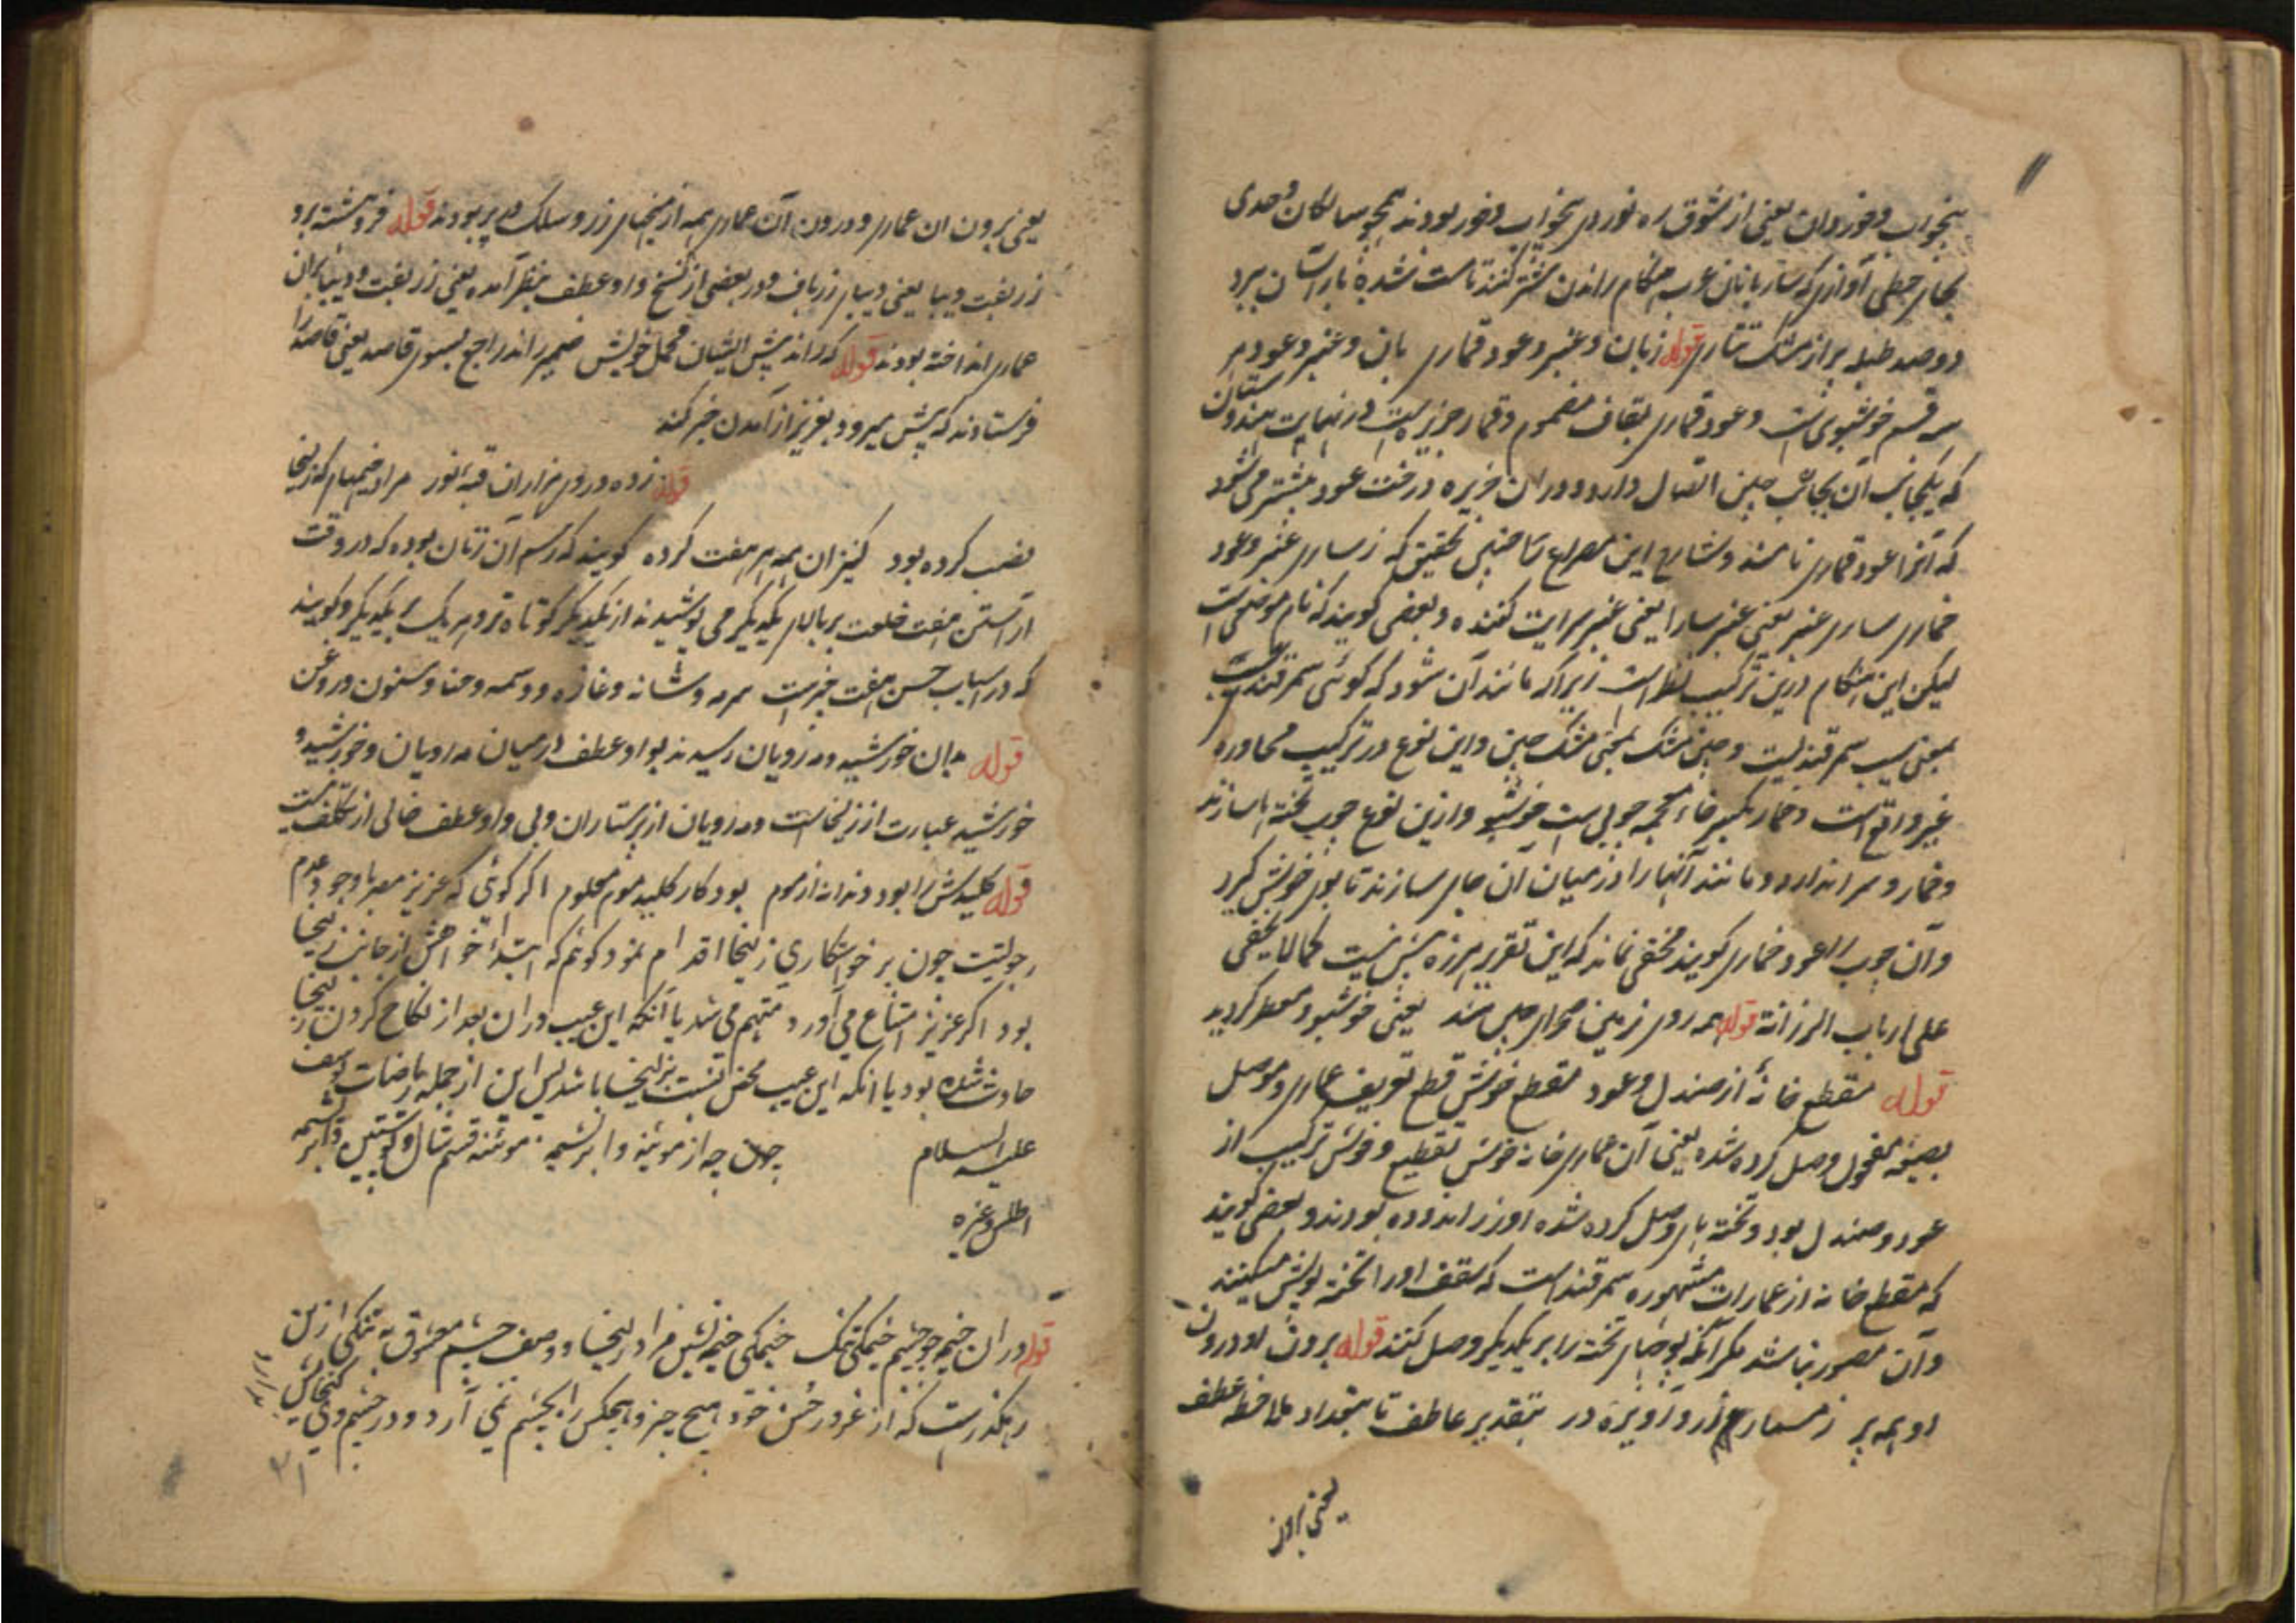 بیخواب و خور دوان یعنی از شوق ره نوردی بیخواب و خور بودند همچو سالکان و حدی
بجای حطی آوازی که ساربانان عرب هنگام راندن شتر کنند تا مست شده بار آسان برد
دو صد طبله پر از مشک تتاری قوله ز بان و عنبر و عود قماری بان و عنبر و عود هر
سه قسم خوشبوی است و عود قماری بقاف مضموم و قمار جزیره ایست در نهایت هندوستان
که یکجانب آن بجانب چین اتصال دارد و در ان جزیره درخت عود بیشتر می شود
که آنرا عود قماری نامند و شارح این مصراع تحقیق که ز سارای عنبر و عود
خماری سارای عنبر یعنی عنبر سارا یعنی عنبر سرایت کننده و بعضی گویند که نام موضعی است
لیکن این هنگام درین ترکیب نظر است زیرا که مانند آن شود که گوئی سمرقند سیب
بمعنی سیب سمرقند نیست و چین مشک بمعنی مشک چین و این نوع در ترکیب محاوره
غیر واقع است و خمار بکسر خاء معجمه چوبی است خوشبو و ازین نوع چوب تخته ها سازند
و خمار و سرانداز و مانند آنها را در میان آن جای سازند تا بوی خوش گیرد
و آن چوب را عود خماری گویند مخفی نماند که این تقریر هرزه بیش نیست کما لا یخفی
علی ارباب الرزانة قوله همه روی زمین صحرای چین شد یعنی خوشبو و معطر گردید
قوله مقطع خانهٔ از صندل و عود مقطع خوش قطع تعریف عماری و موصل
بصیغه مفعول وصل کرده شده یعنی آن عماری خانه خوش تقطیع و خوش ترکیب از
عود و صندل بود و تخته های وصل کرده شده او زر اندوده بودند و بعضی گویند
که مقطع خانه از عمارات مشهوره سمرقند است که سقف او را تخته پوش میکنند
و آن مصور نباشد مگر آنکه تخته را بر یکدیگر وصل کنند قوله برون او درون
او همه پر ز مسمار زر و آویزه در بتقدیر عاطف تا بتعداد ملاحظه عطف
یعنی برون
یعنی برون ان عماری و درون آن عماری همه از میخهای زر و سلک در پر بودند قوله فروهشته برو
زربفت دیبا یعنی دیبای زرباف و در بعضی از نسخ واو عطف بنظر آمده یعنی زربفت و دیبا بران
عماری انداخته بودند قوله که راند پیش ایشان محمل خویش ضمیر راند راجع بسوی قاصد یعنی قاصد را
فرستادند که پیش میرود بعزیز از آمدن خبر کند
قوله زده در وی هزاران قبهٔ نور مراد خیمهای که زلیخا
نصب کرده بود کنیزان همه هر هفت کرده گویند که رسم آن زنان بوده که در وقت
آراستن هفت خلعت بر بالای یکدیگر می پوشیدند از یکدیگر کوتاه تر و هر یک بر یکدیگر و گویند
که در اسباب حسن هفت چیز است سرمه و شانه و غازه و وسمه و حنا و سنون و روغن
قوله بان خورشید و مه رویان رسیدند بواو عطف در میان مه رویان و خورشید و
خورشید عبارت از زلیخاست و مه رویان از پرستاران و بی واو عطف خالی از تکلف نیست
قوله کلیدش را بود دندانه از موم بود کار کلید موم معلوم اگر گوئی که عزیز مصر باوجود عدم
رجولیت چون بر خواستکاری زلیخا اقدام نمود گویم که ابتداء خواهش از جانب زلیخا
بود اگر عزیز امتناع می آورد متهم می شد یا آنکه این عیب در ان بعد از نکاح کردن زلیخا
حادث شده بود یا انکه این عیب محض نسبت بزلیخا باشد پس این از جمله ریاضات یوسف
علیه السلام چه از موئینه و ابریشمه موئینه قسم شال و پوستین و ابریشمه
اطلس و غیره
قوله در ان خیمه چو چشم خیمگی تنگ خیمگی خیمه نشین مراد زلیخا و وصف چشم معشوق به تنگی ازین
رهگذرست که از غرور حسن خود هیچ چیز و هیچکس را بچشم نمی آرد و در چشم وی گنجایش
ندارد